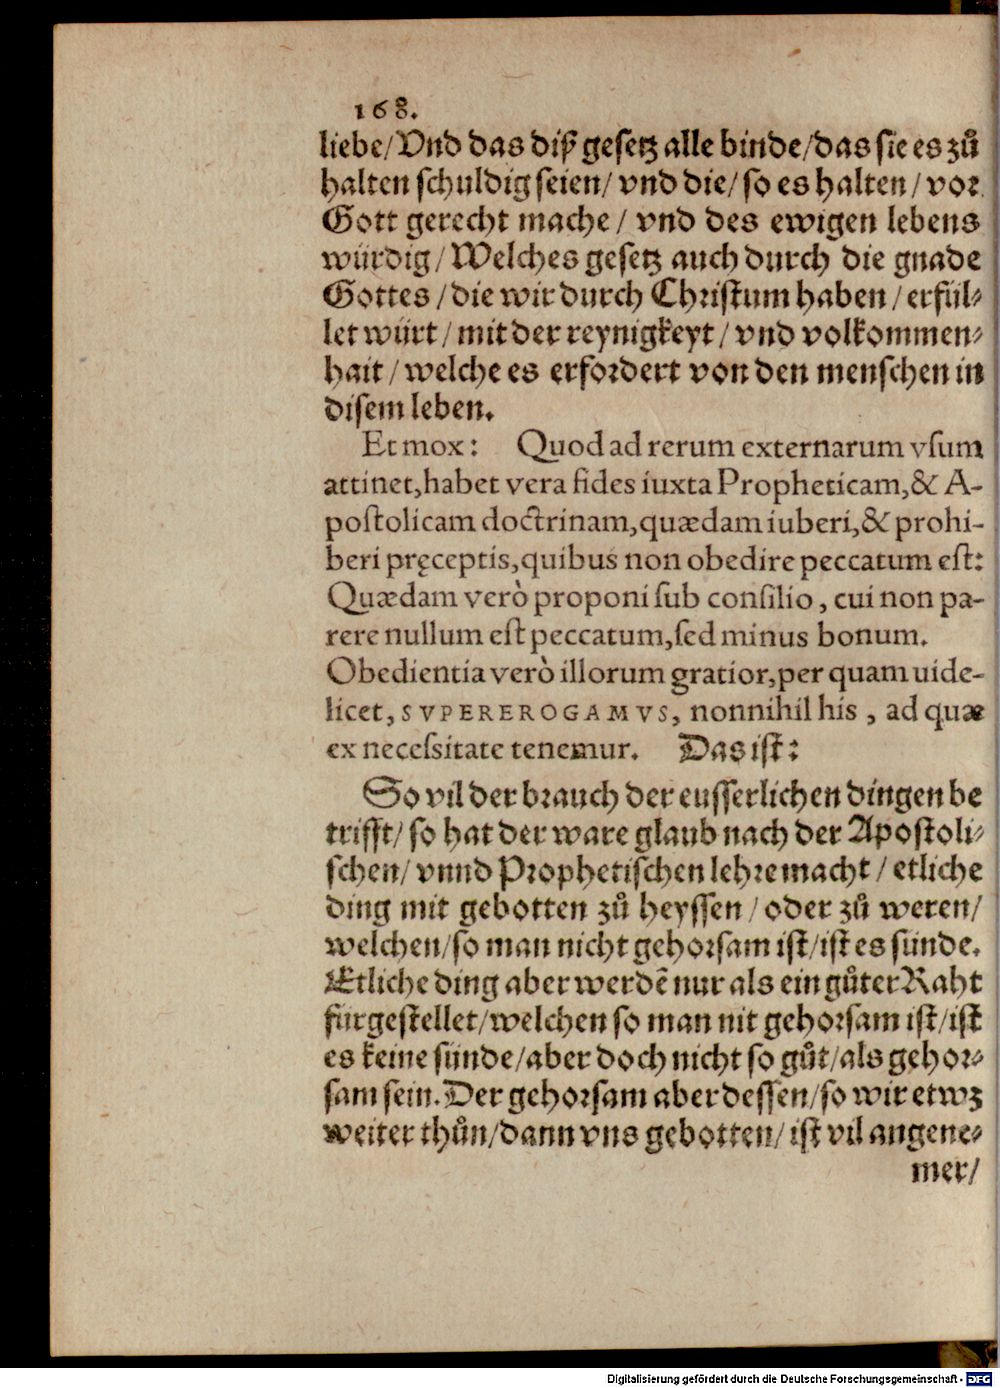 168.
liebe/Vnd das diß gesetz alle binde/das sie es zů
halten schuldig seien/ vnd die/ so es halten/ vor
Gott gerecht mache/ vnd des ewigen lebens
würdig/ Welches gesetz auch durch die gnade
Gottes/ die wir durch Christum haben/ erfül⸗
let würt/ mit der reynigkeyt/ vnd volkommen⸗
hait/ welche es erfordert von den menschen in
disem leben.
Et mox: Quod ad rerum externarum vsum
attinet, habet vera fides iuxta Propheticam, & A-
postolicam doctrinam, quædam iuberi, & prohi-
beri pręceptis, quibus non obedire peccatum est:
Quædam verò proponi sub consilio, cui non pa-
rere nullum est peccatum, sed minus bonum.
Obedientia verò illorum gratior, per quam uide-
licet, SVPEREROGAMVS, nonnihil his, ad quæ
ex necessitate tenemur. Das ist:
So vil der brauch der eusserlichen dingen be
trifft/ so hat der ware glaub nach der Apostoli⸗
schen/ vnnd Prophetischen lehre macht/ etliche
ding mit gebotten zů heyssen/ oder zů weren/
welchen/so man nicht gehorsam ist/ist es sünde.
Etliche ding aber werdē nur als ein gůter Raht
fürgestellet/welchen so man nit gehorsam ist/ist
es keine sünde/aber doch nicht so gůt/als gehor⸗
sam sein. Der gehorsam aber dessen/so wir etwz
weiter thůn/dann vns gebotten/ ist vil angene⸗
mer/
Digitalisierung gefördert durch die Deutsche Forschungsgemeinschaft - DFG